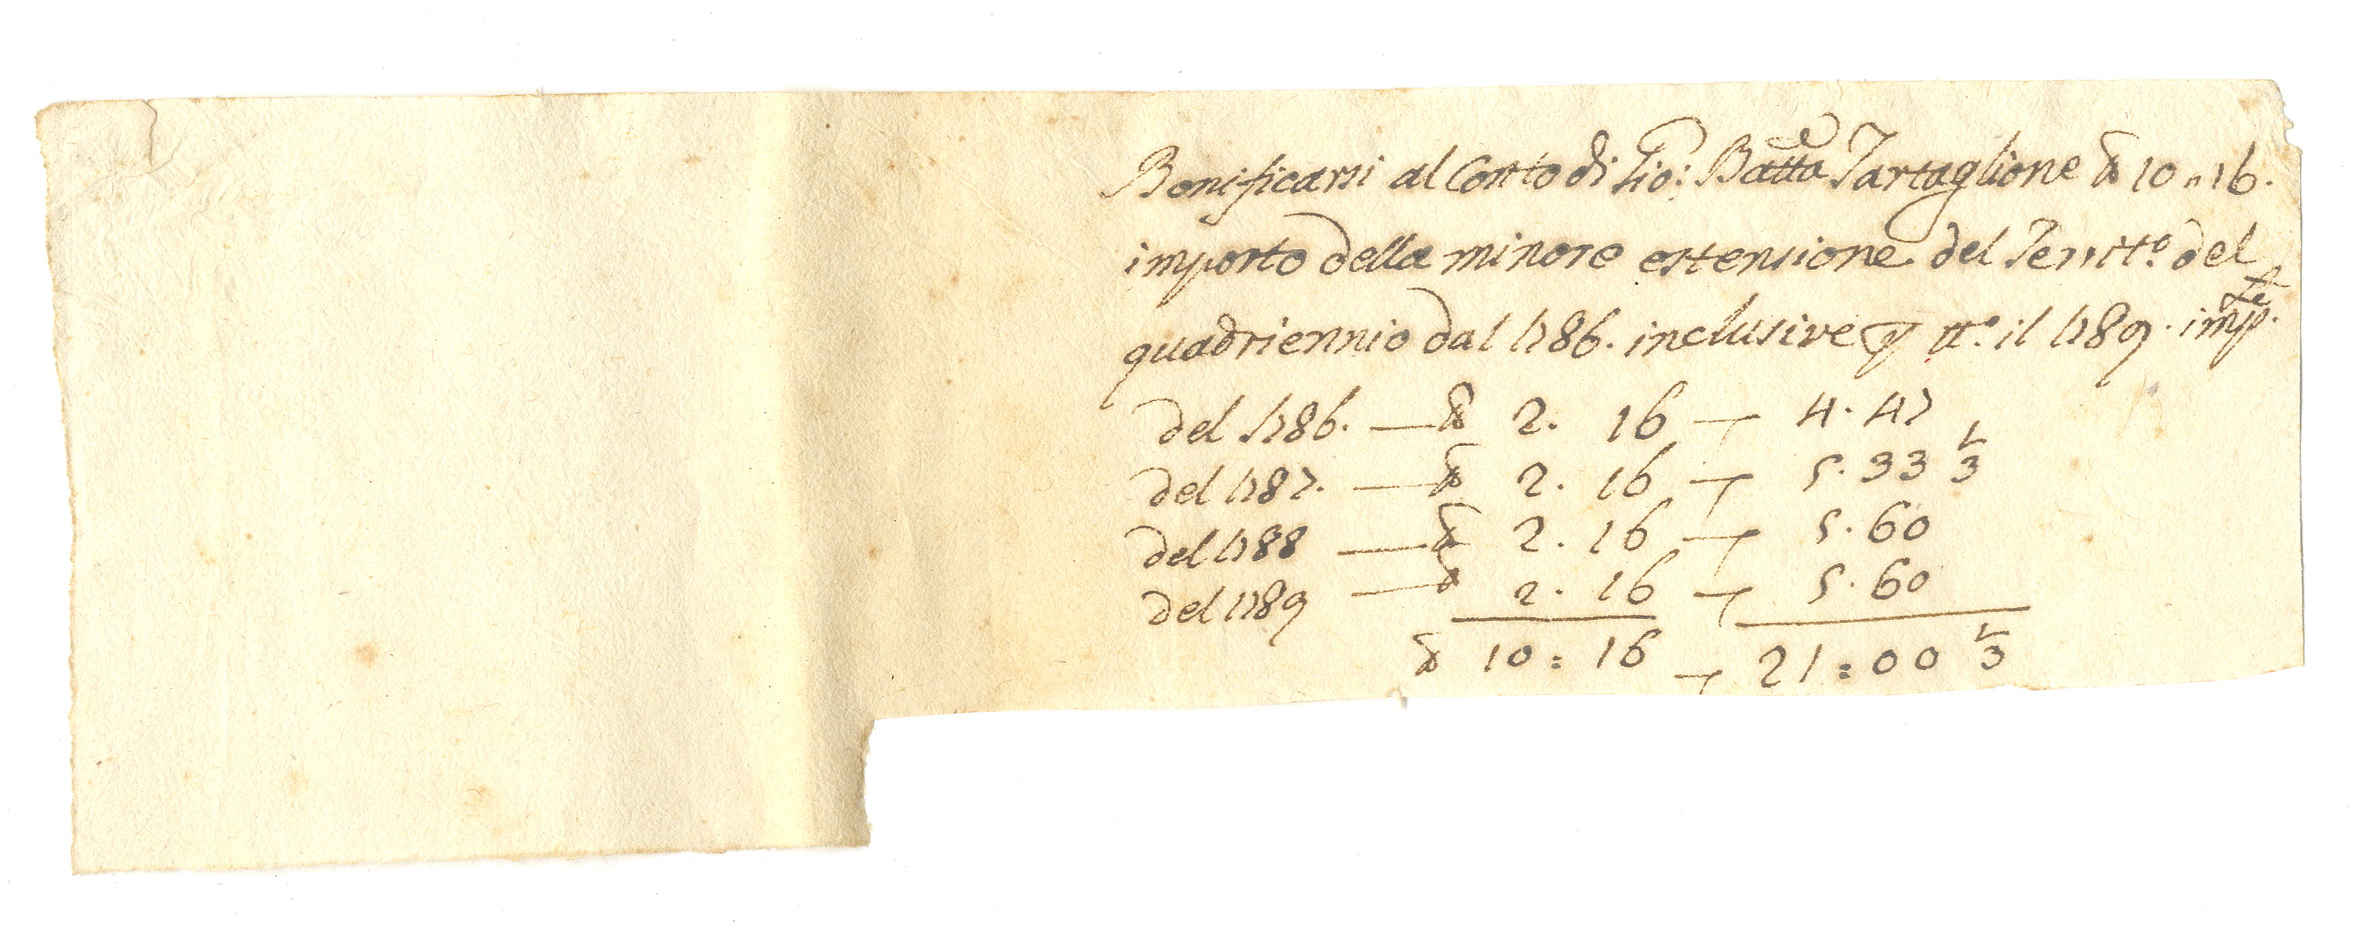 Bonificarsi al Conto di Gio: Batta Tartaglione 10 " 16.
importo della minore estensione del Territo. del
quadriennio dal 1786. inclusive tto. il 1789. imp.
del 1786. — 2. 16 — 4. 47
del 1787. — 2. 16 — 5. 33 1/3
del 1788 — 2. 16 — 5. 60
del 1789 — 2. 16 — 5. 60
10 : 16 — 21 : 00 1/3